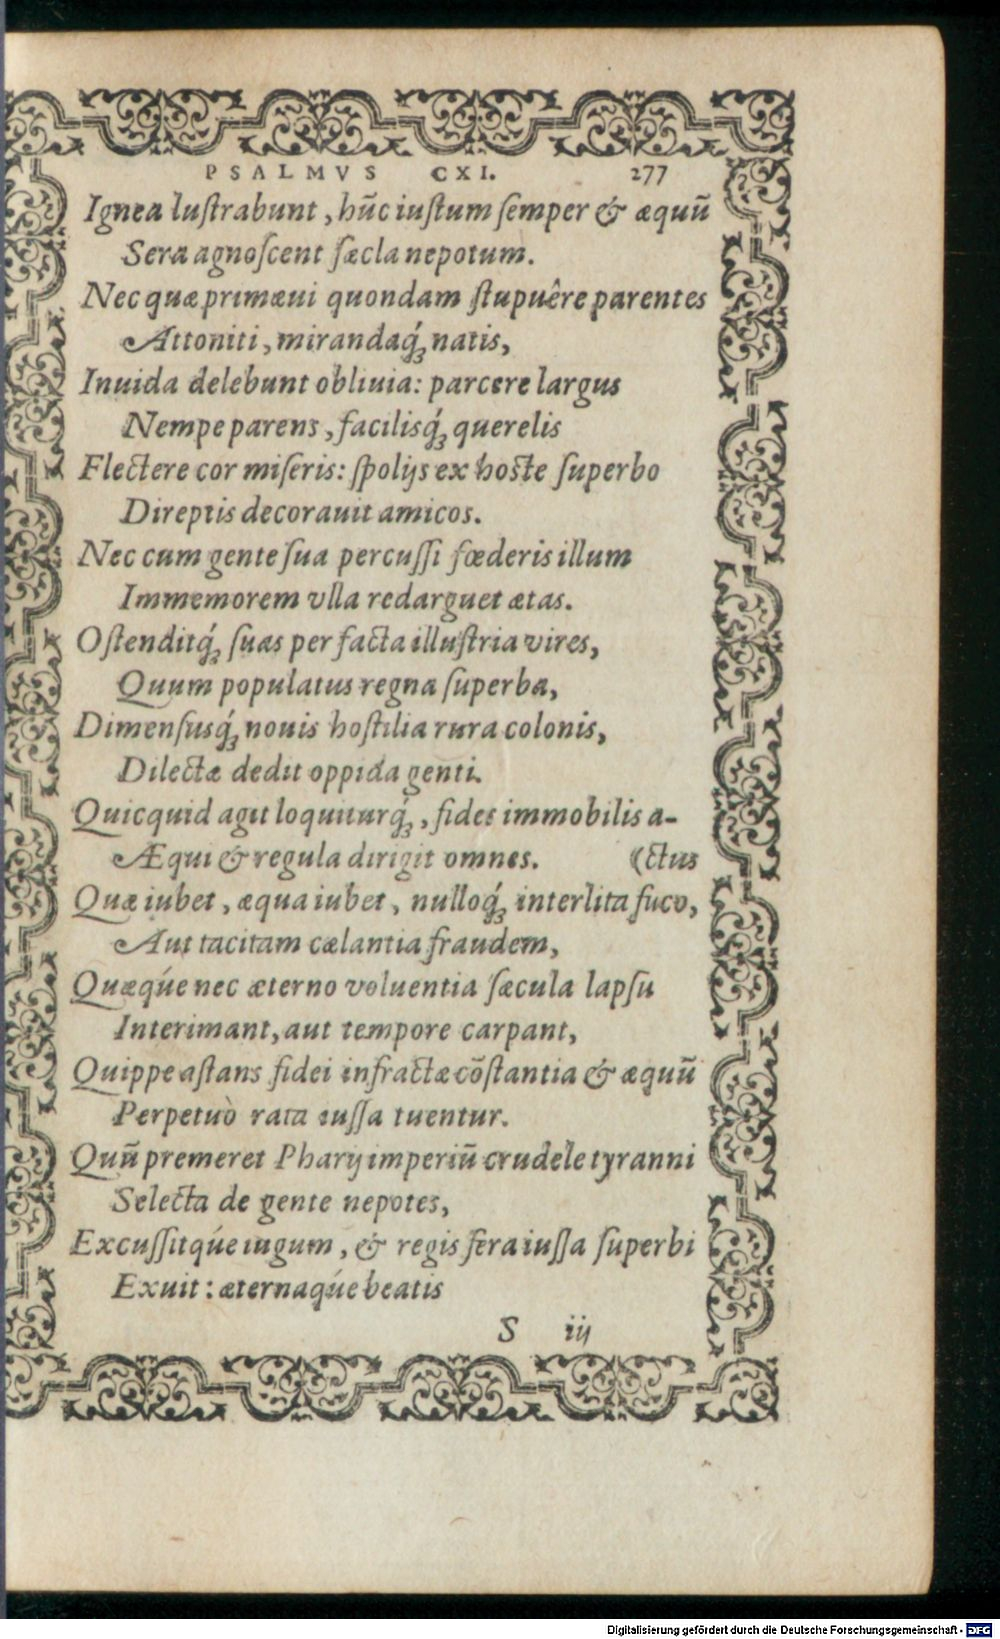 PSALMVS CXI. 277
Ignea lustrabunt, hūc iustum semper & æquū
Sera agnoscent sæcla nepotum.
Nec quæ primæui quondam stupuêre parentes
Attoniti, mirandaq́ꝫ natis,
Inuida delebunt obliuia: parcere largus
Nempe parens, facilisq́ꝫ querelis
Flectere cor miseris: spolijs ex hoste superbo
Direptis decorauit amicos.
Nec cum gente sua percussi fœderis illum
Immemorem vlla redarguet ætas.
Ostenditq́ꝫ suas per facta illustria vires,
Quum populatus regna superba,
Dimensusq́ꝫ nouis hostilia rura colonis,
Dilectæ dedit oppida genti.
Quicquid agit loquiturq́ꝫ, fides immobilis a-
Æqui & regula dirigit omnes. (ctus
Quæ iubet, æqua iubet, nulloq́ꝫ interlita fuco,
Aut tacitam cælantia fraudem,
Quæq́ue nec æterno voluentia sæcula lapsu
Interimant, aut tempore carpant,
Quippe astans fidei infractæ cōstantia & æquū
Perpetuò rata iussa tuentur.
Quū premeret Pharij imperiū crudele tyranni
Selecta de gente nepotes,
Excussitq́ue iugum, & regis fera iussa superbi
Exuit: æternaq́ue beatis
S iij
Digitalisierung gefördert durch die Deutsche Forschungsgemeinschaft - DFG